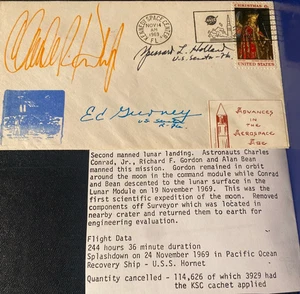 KENNEDY SPACE CENTER
NOV 14
1969
FL
CHRISTMAS 6c
UNITED STATES
Spessard L. Holland
U.S. Senator - Fla
Ed Gurney
US Senator
R-Fla.
ADVANCES
IN THE
AEROSPACE
AGE
Second manned lunar landing. Astronauts Charles
Conrad, Jr., Richard F. Gordon and Alan Bean
manned this mission. Gordon remained in orbit
around the moon in the command module while Conrad
and Bean descented to the lunar surface in the
Lunar Module on 19 November 1969. This was the
first scientific expedition of the moon. Removed
components off Surveyor which was located in
nearby crater and returned them to earth for
engineering evaluation.
Flight Data
244 hours 36 minute duration
Splashdown on 24 November 1969 in Pacific Ocean
Recovery Ship - U.S.S. Hornet
Quantity cancelled - 114,626 of which 3929 had
the KSC cachet applied